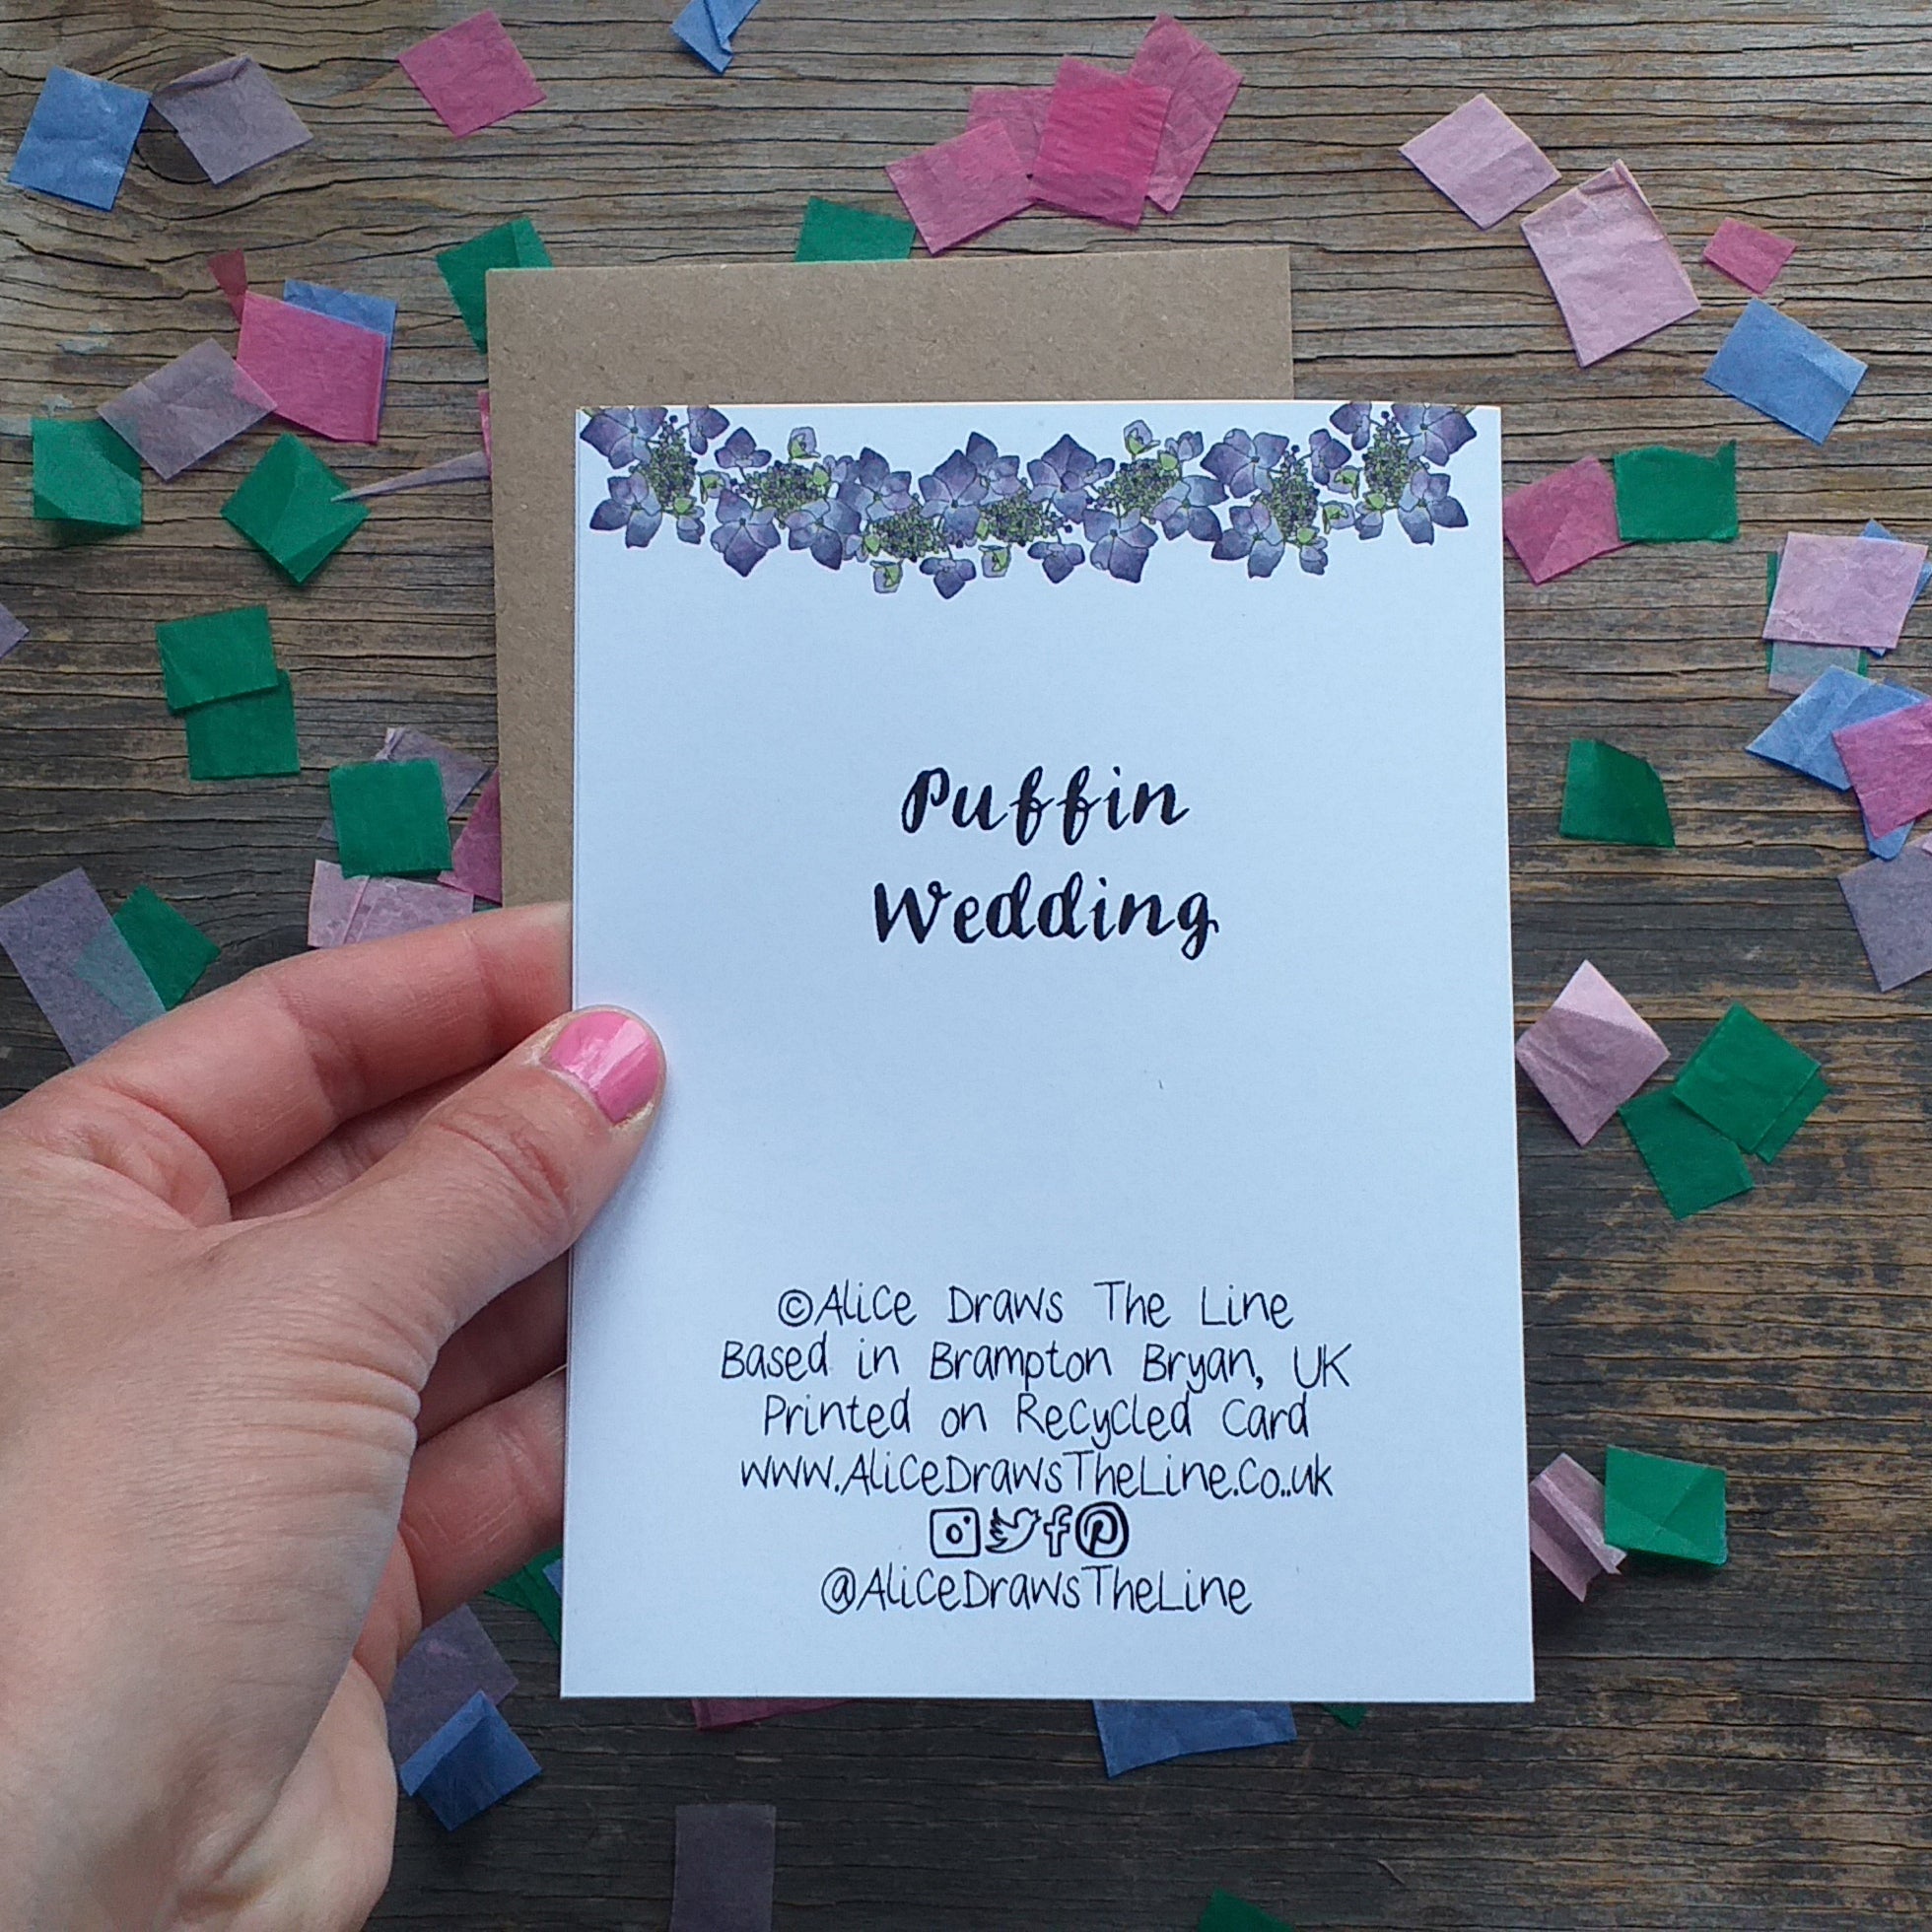 Puffin
Wedding
©Alice Draws The Line
Based in Brampton Bryan, UK
Printed on Recycled Card
www.AliceDrawsTheLine.co..uk
@AliceDrawsTheLine